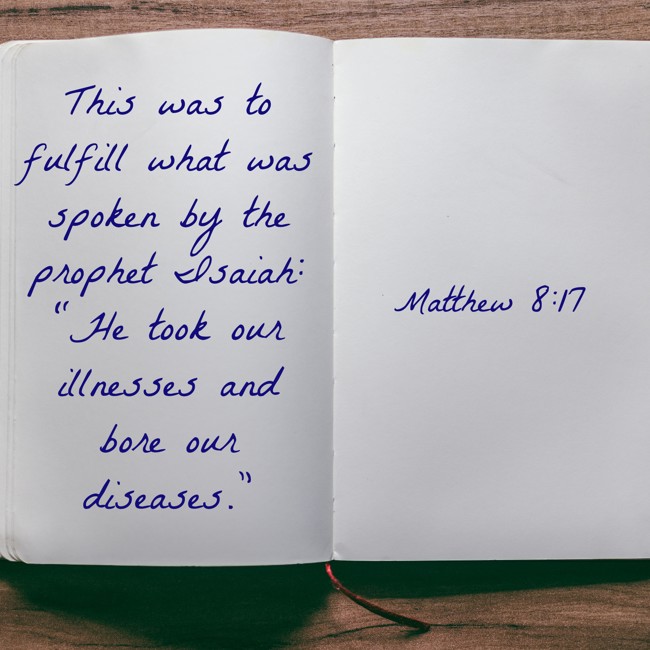 This was to
fulfill what was
spoken by the
prophet Isaiah:
"He took our
illnesses and
bore our
diseases."
Matthew 8:17